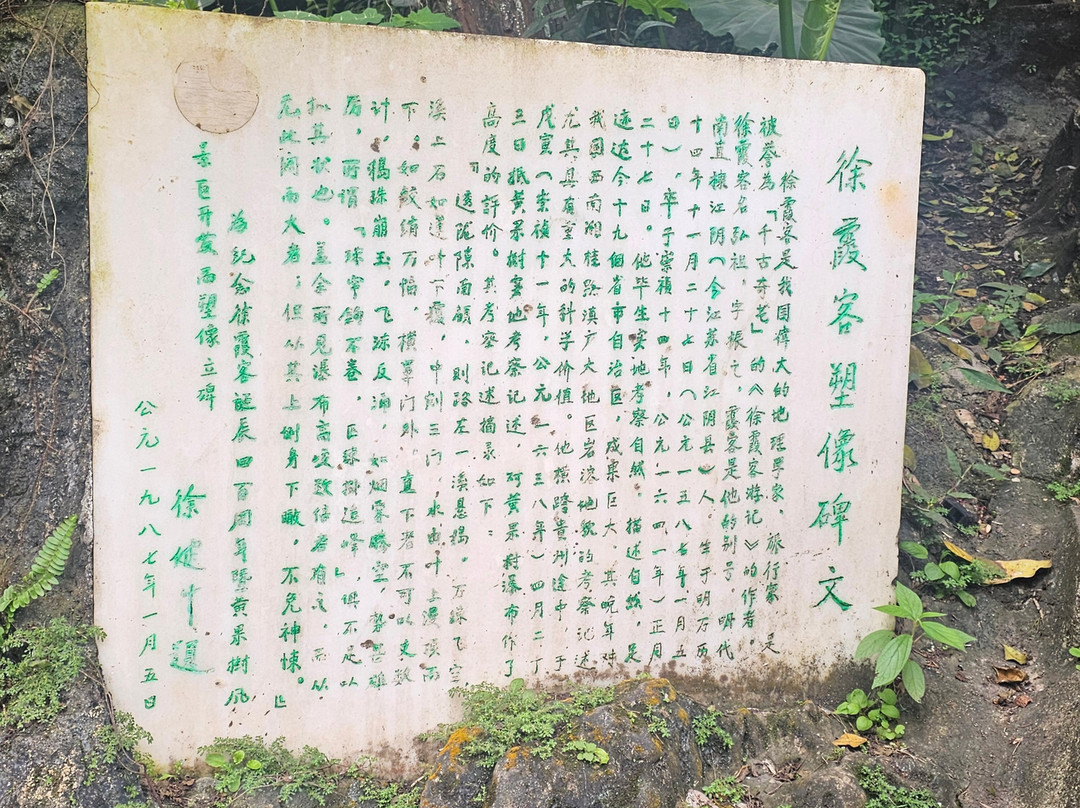 徐霞客塑像碑文
徐霞客是我国伟大的地理学家、旅行家，是
被誉为「千古奇书」的《徐霞客游记》的作者。
徐霞客名弘祖，字振之，霞客是他的别号，明代
南直棣江阴（今江苏省江阴县）人，生于明万历
十四年十一月二十七日（公元一五八七年一月五
日），卒于崇祯十四年，公元一六四一年）正月
二十七日。他毕生实地考察自然，描述自然，足
迹达今十九个省市自治区，成果巨大、其晚年对
我国西南湘桂黔滇广大地区岩溶地貌的考察记述
尤其具有重大的科学价值。他横跨贵州途中，于
戊寅（崇祯十一年，公元一六三八年）四月二十
三日抵黄果树实地考察记述，对黄果树瀑布作了
高度的评价。其考察记述摘录如下：
『透陇隙南顾，则路左一溪悬捣，万练飞空，
溪上石如莲叶下覆，中剜三门，水由叶上漫顶而
下，如鲛绡万幅，横罩门外，直下者不可以丈数
计，捣珠崩玉，飞沫反涌，如烟雾腾空，势甚雄
厉，所谓『珠帘钩不卷，匹练挂遥峰』，俱不足以
拟其状也。盖余所见瀑布高峻数倍者有之，而从
无此阔而大者；但从其上侧身下瞰，不免神悚。』
为纪念徐霞客诞辰四百周年暨黄果树风
景区开发而塑像立碑
徐健中
公元一九八七年一月五日